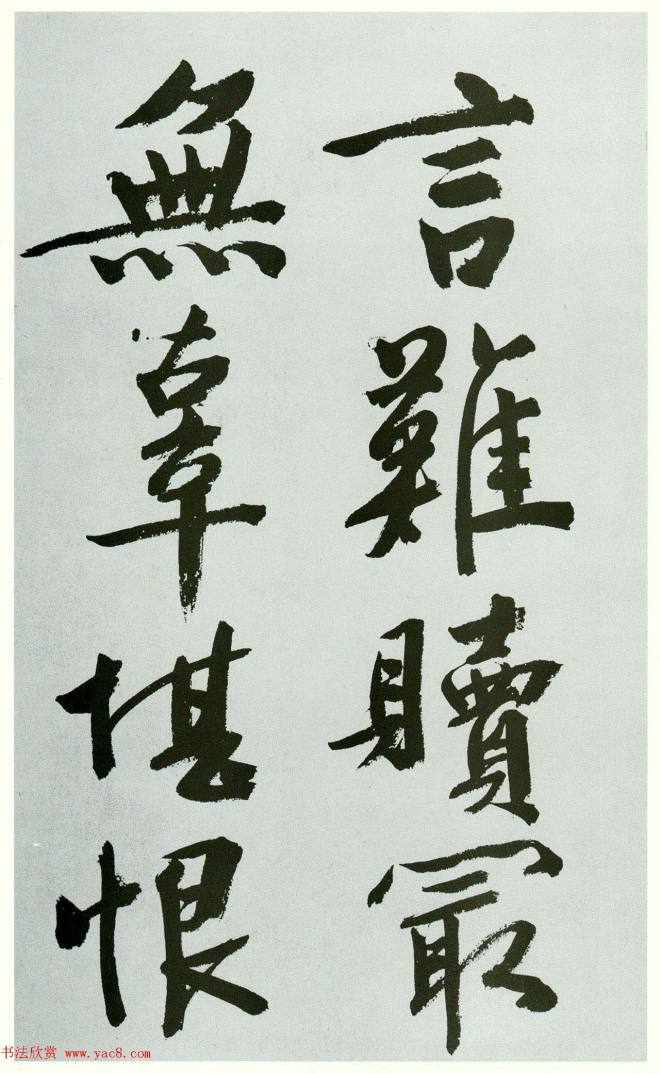 言難贖冣
無辜堪恨
书法欣赏 www.yac8.com